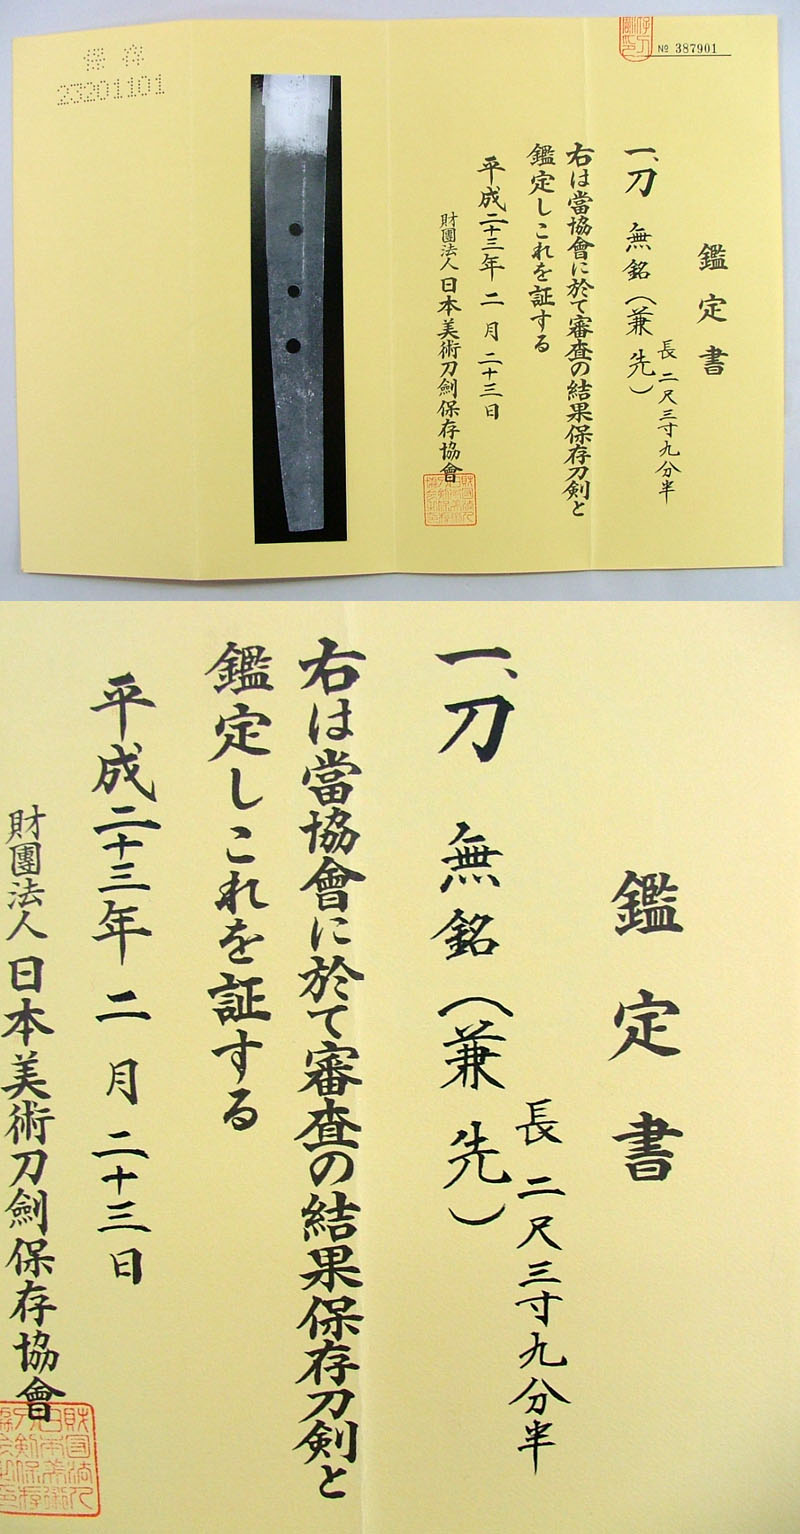 保存
23201101
№ 387901
鑑定書
一、刀 無銘（兼先）
長 二尺三寸九分半
右は當協會に於て審査の結果保存刀剣と
鑑定しこれを証する
平成二十三年 二月 二十三日
財團法人 日本美術刀劍保存協會
鑑定書
一、刀 無銘（兼先）
長 二尺三寸九分半
右は當協會に於て審査の結果保存刀剣と
鑑定しこれを証する
平成二十三年 二月 二十三日
財團法人 日本美術刀劍保存協會